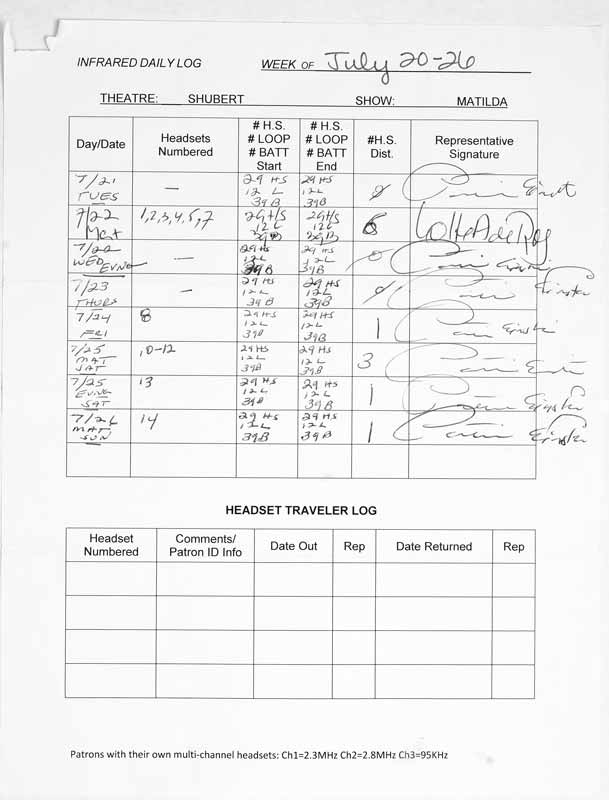 INFRARED DAILY LOG WEEK OF July 20-26
THEATRE: SHUBERT SHOW: MATILDA
Day/Date Headsets Numbered # H.S. # LOOP # BATT Start # H.S. # LOOP # BATT End #H.S. Dist. Representative Signature
7/21 TUES — 29 HS 12 L 39B 29 HS 12L 39B 0
7/22 Mat 1,2,3,4,5,7 29HS 12L 39B 29HS 12L 39B 6
7/22 WED EVNG — 29HS 12L 39B 29HS 12L 39B 0
7/23 THURS — 29HS 12L 39B 29HS 12L 39B 0
7/24 FRI 8 29HS 12L 39B 29HS 12L 39B 1
7/25 MAT SAT 10-12 29HS 12L 39B 29HS 12L 39B 3
7/25 EVNG SAT 13 29 HS 12L 39B 29 HS 12L 39B 1
7/26 MAT SUN 14 29 HS 12L 39B 29 H.S 12L 39B 1
HEADSET TRAVELER LOG
Headset Numbered Comments/ Patron ID Info Date Out Rep Date Returned Rep
Patrons with their own multi-channel headsets: Ch1=2.3MHz Ch2=2.8MHz Ch3=95KHz